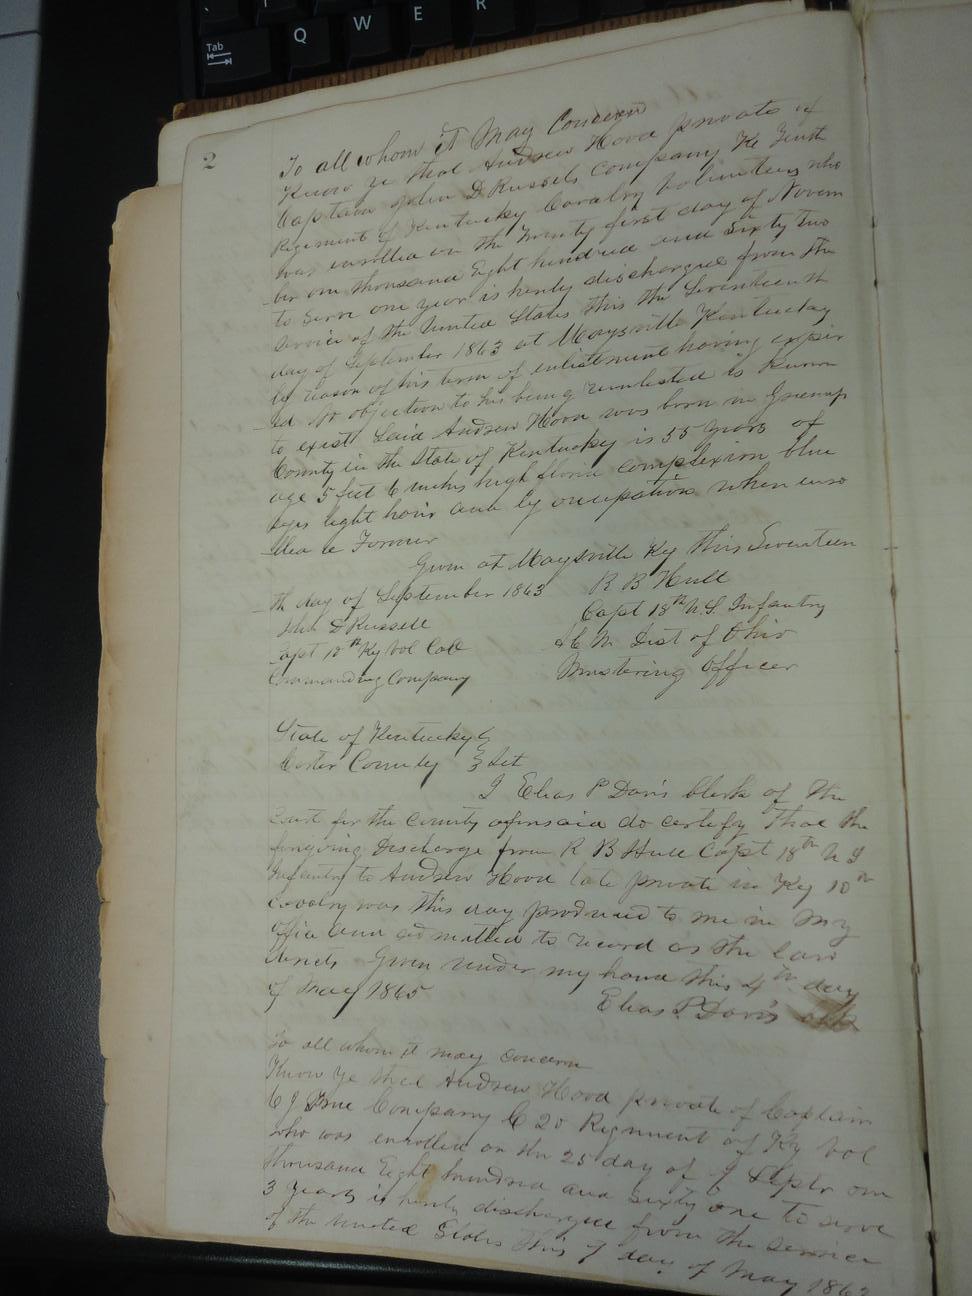 Tab
Q W E R
2
To all whom it May Concern
Know ye that Andrew Hood private of
Captain John D Russels Company K Tenth
Regiment of Kentucky Cavalry Volunteers who
was enrolled on the Twenty first day of Novem
ber one thousand Eight hundred and Sixty two
to Serve one year is herby discharged from the
Service of the United States this the Seventeenth
day of September 1863 at Maysville Kentuckey
by reason of his term of enlistment having expir
ed No objection to his being reenlested is known
to exist Said Andrew Hood was born in Greenup
County in the State of Kentucky is 55 years of
age 5 feet 6 inches high florid complexion blue
eyes light hair and by occupation when enro
lled a Farmer
Given at Maysville Ky this Seventeen
th day of September 1863 R B Hull
John D Russell Capt 18th U.S. Infantry
Capt 10th Ky Vol Cal & C M Dist of Ohio
Commanding Company Mustering Officer
State of Kentucky
Carter County Sct
I Elias P Davis Clerk of the
court for the county aforesaid do certify that the
foregoing Discharge from R B Hull Capt 18th U S
Infantry to Andrew Hood late private in Ky 10th
Cavalry was this day produced to me in my
office and admitted to record as the law
directs Given under my hand this 4th day
of May 1865 Elias P Davis clk
To all whom it may concern
Know Ye that Andrew Hood private of Captain
C J True Company C 20 Regiment of Ky Vol
who was enrolled on the 25 day of Septr one
thousand Eight hundred and sixty one to serve
3 years is herby discharged from the service
of the United States this 7 day of May 1862